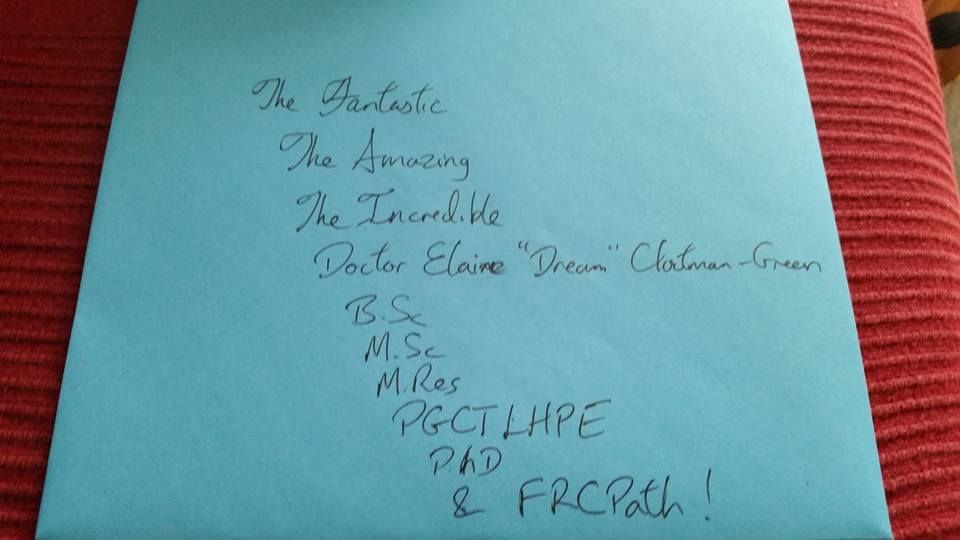 The Fantastic
The Amazing
The Incredible
Doctor Elaine "Dream" Cloutman-Green
B.Sc
M.Sc
M.Res
PGCTLHPE
P.hD
& FRCPath!